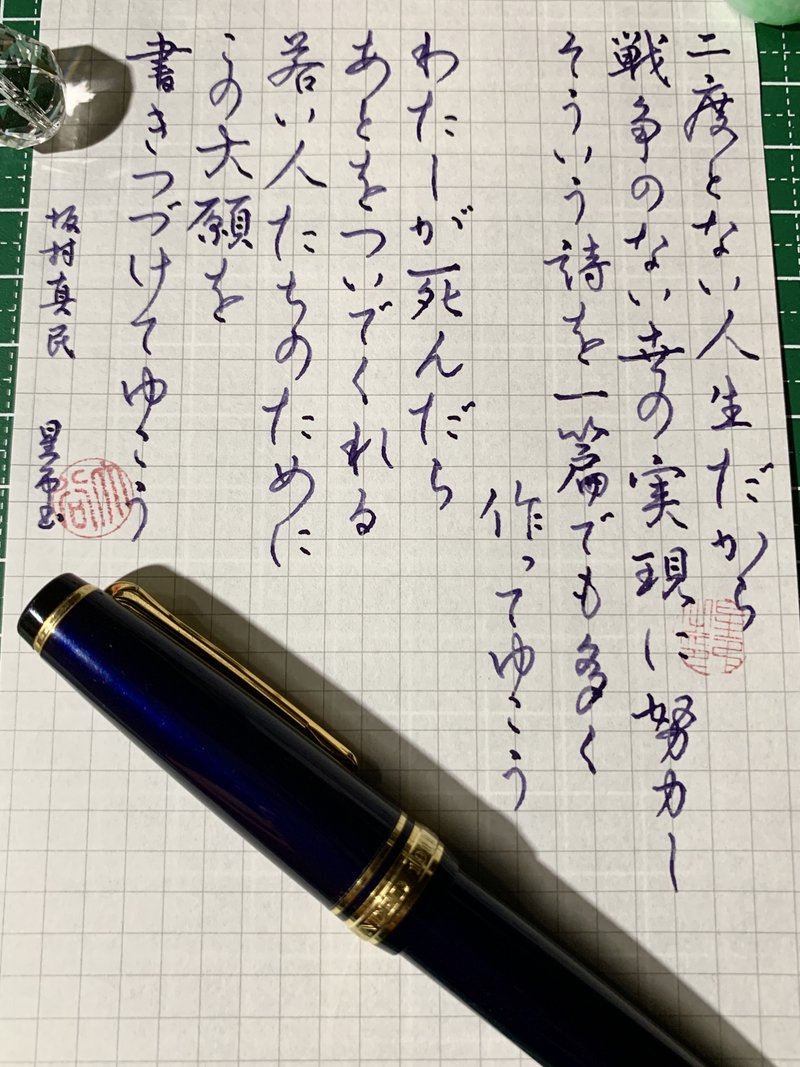 二度とない人生だから
戦争のない世の実現に努力し
そういう詩を一篇でも多く
作ってゆこう
わたしが死んだら
あとをついでくれる
若い人たちのために
この大願を
書きつづけてゆこう
坂村真民